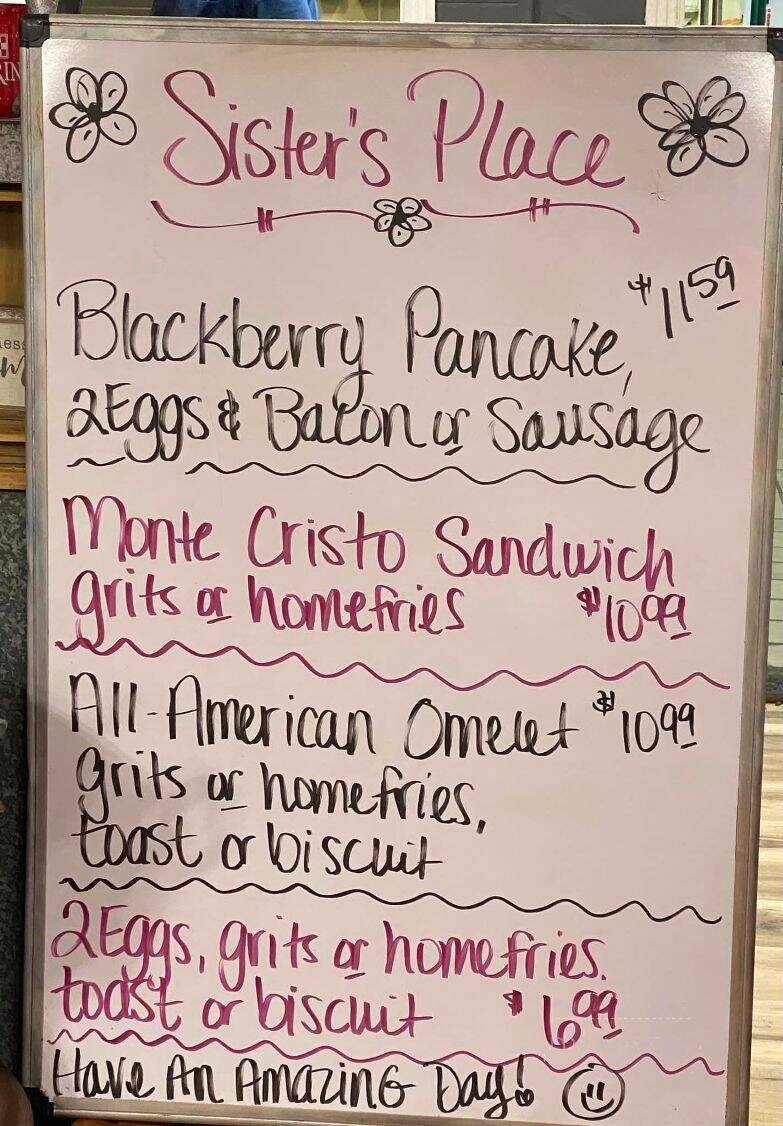 Sister's Place
$11.59
Blackberry Pancake,
2 Eggs & Bacon or Sausage
Monte Cristo Sandwich
grits or homefries $10.99
All-American Omelet $10.99
grits or homefries,
toast or biscuit
2 Eggs, grits or homefries.
toast or biscuit $6.99
Have An Amazing Day!